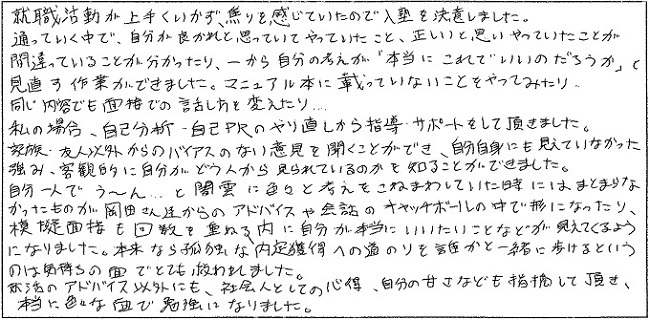 就職活動が上手くいかず、焦りを感じていたので入塾を決意しました。
通っていく中で、自分が良かれと思っていてやっていたこと、正しいと思いやっていたことが
間違っていることが分かったり、一から自分の考えが「本当にこれでいいのだろうか」と
見直す作業ができました。マニュアル本に載っていないことをやってみたり、
同じ内容でも面接での話し方を変えたり…
私の場合、自己分析・自己PRのやり直しから指導・サポートをして頂きました。
家族・友人以外からのバイアスのない意見を聞くことができ、自分自身にも見えていなかった
強み、客観的に自分がどう人から見られているのかを知ることができました。
自分一人でう〜ん…と闇雲に色々と考えをこねまわしていた時には、まとまらな
かったものが岡田さん達からのアドバイスや会話のキャッチボールの中で形になったり、
模擬面接も回数を重ねる内に自分が本当にいいたいことなどが見えてくるよう
になりました。本来なら孤独な内定獲得への道のりを誰かと一緒に歩けるという
のは気持ちの面でとても救われました。
就活のアドバイス以外にも、社会人としての心得、自分の甘さなども指摘して頂き、
本当に色々な面で勉強になりました。